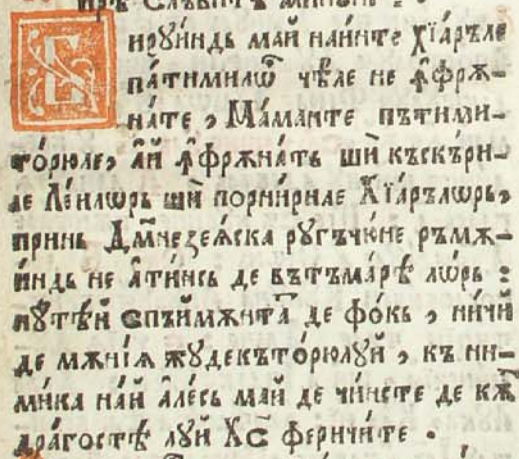 Бирꙋиндь май наи́нте хїа́рѣле
па́тимилѡ҆ чѣ́ле не ꙟ҆фрѫ-
на́те , Ма́манте пътими-
то́рюле, а҆́й ꙟ҆фрѫна́ть шѝ къскъри-
ле Ле́илѡрь шѝ порни́риле Хїа́рълѡрь,
принь Дм҃незеѧ́ска рꙋгъчю́не ръмѫ-
и́ндь не а҆ти́нсь де вътъма́рѣ лѡ́рь :
нꙋте́й спъймѫнта де фо́кь , ни́чй
де мѫні́ѧ жꙋдекъто́рюлꙋй , къ ни-
мика на́й а҆ле́сь май де чи́нсте де кѫ
дра́гостѣ лꙋй Хс҃ феричи́те .